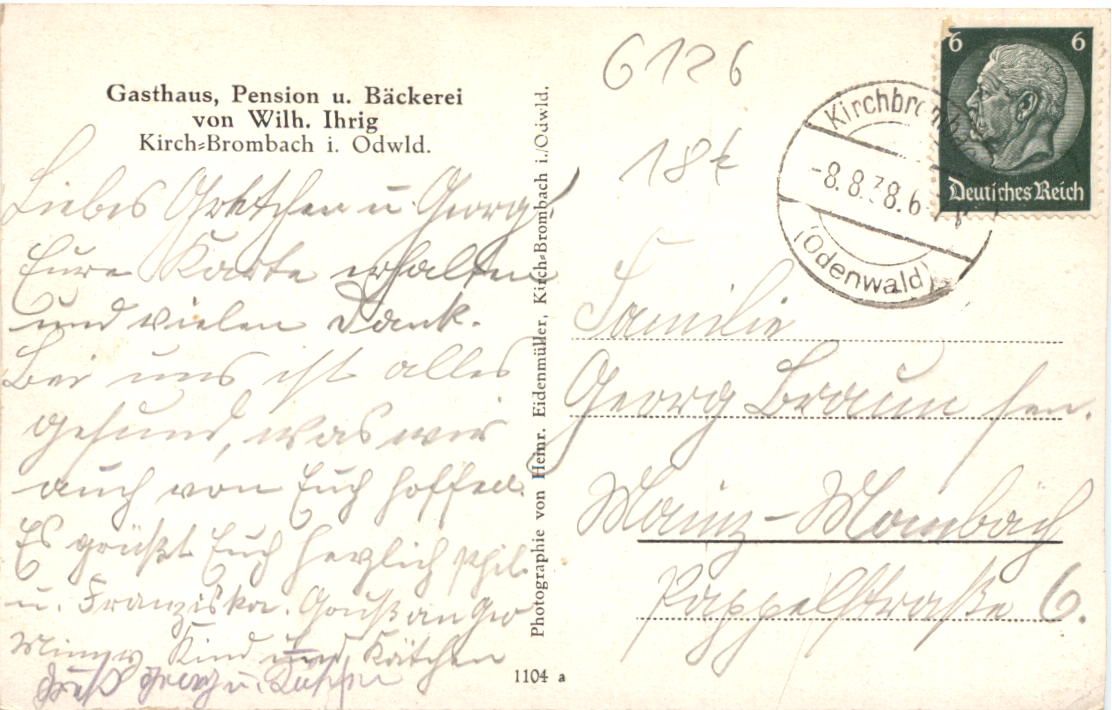 Gasthaus, Pension u. Bäckerei
von Wilh. Ihrig
Kirch=Brombach i. Odwld.
Liebes Gretchen u. Georg!
Eure Karte erhalten
und vielen Dank.
Bei uns ist alles
gesund, was wir
auch von Euch hoffen.
Es grüßt Euch herzlich Phil.
u. Franziska. Gruß an
Kind und Kätchen
Gruß Georg u.
Photographie von Heinr. Eidenmüller, Kirch=Brombach i./Odwld.
1104 a
6126
18
6 6
Deutsches Reich
Kirchbrombach
-8.8.38.6-
(Odenwald)
Familie
Georg Braun sen.
Mainz-Mombach
Pappelstraße 6.